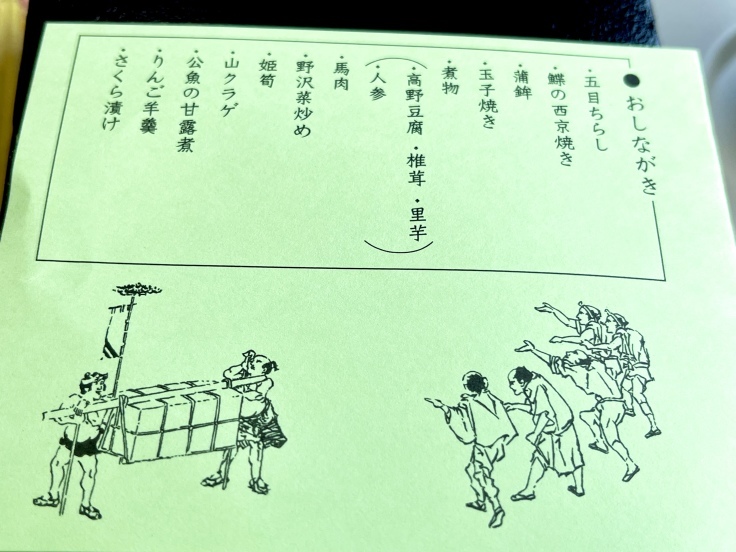 ●おしながき
・五目ちらし
・鰈の西京焼き
・蒲鉾
・玉子焼き
・煮物
（・高野豆腐・椎茸・里芋
・人参）
・馬肉
・野沢菜炒め
・姫筍
・山クラゲ
・公魚の甘露煮
・りんご羊羹
・さくら漬け